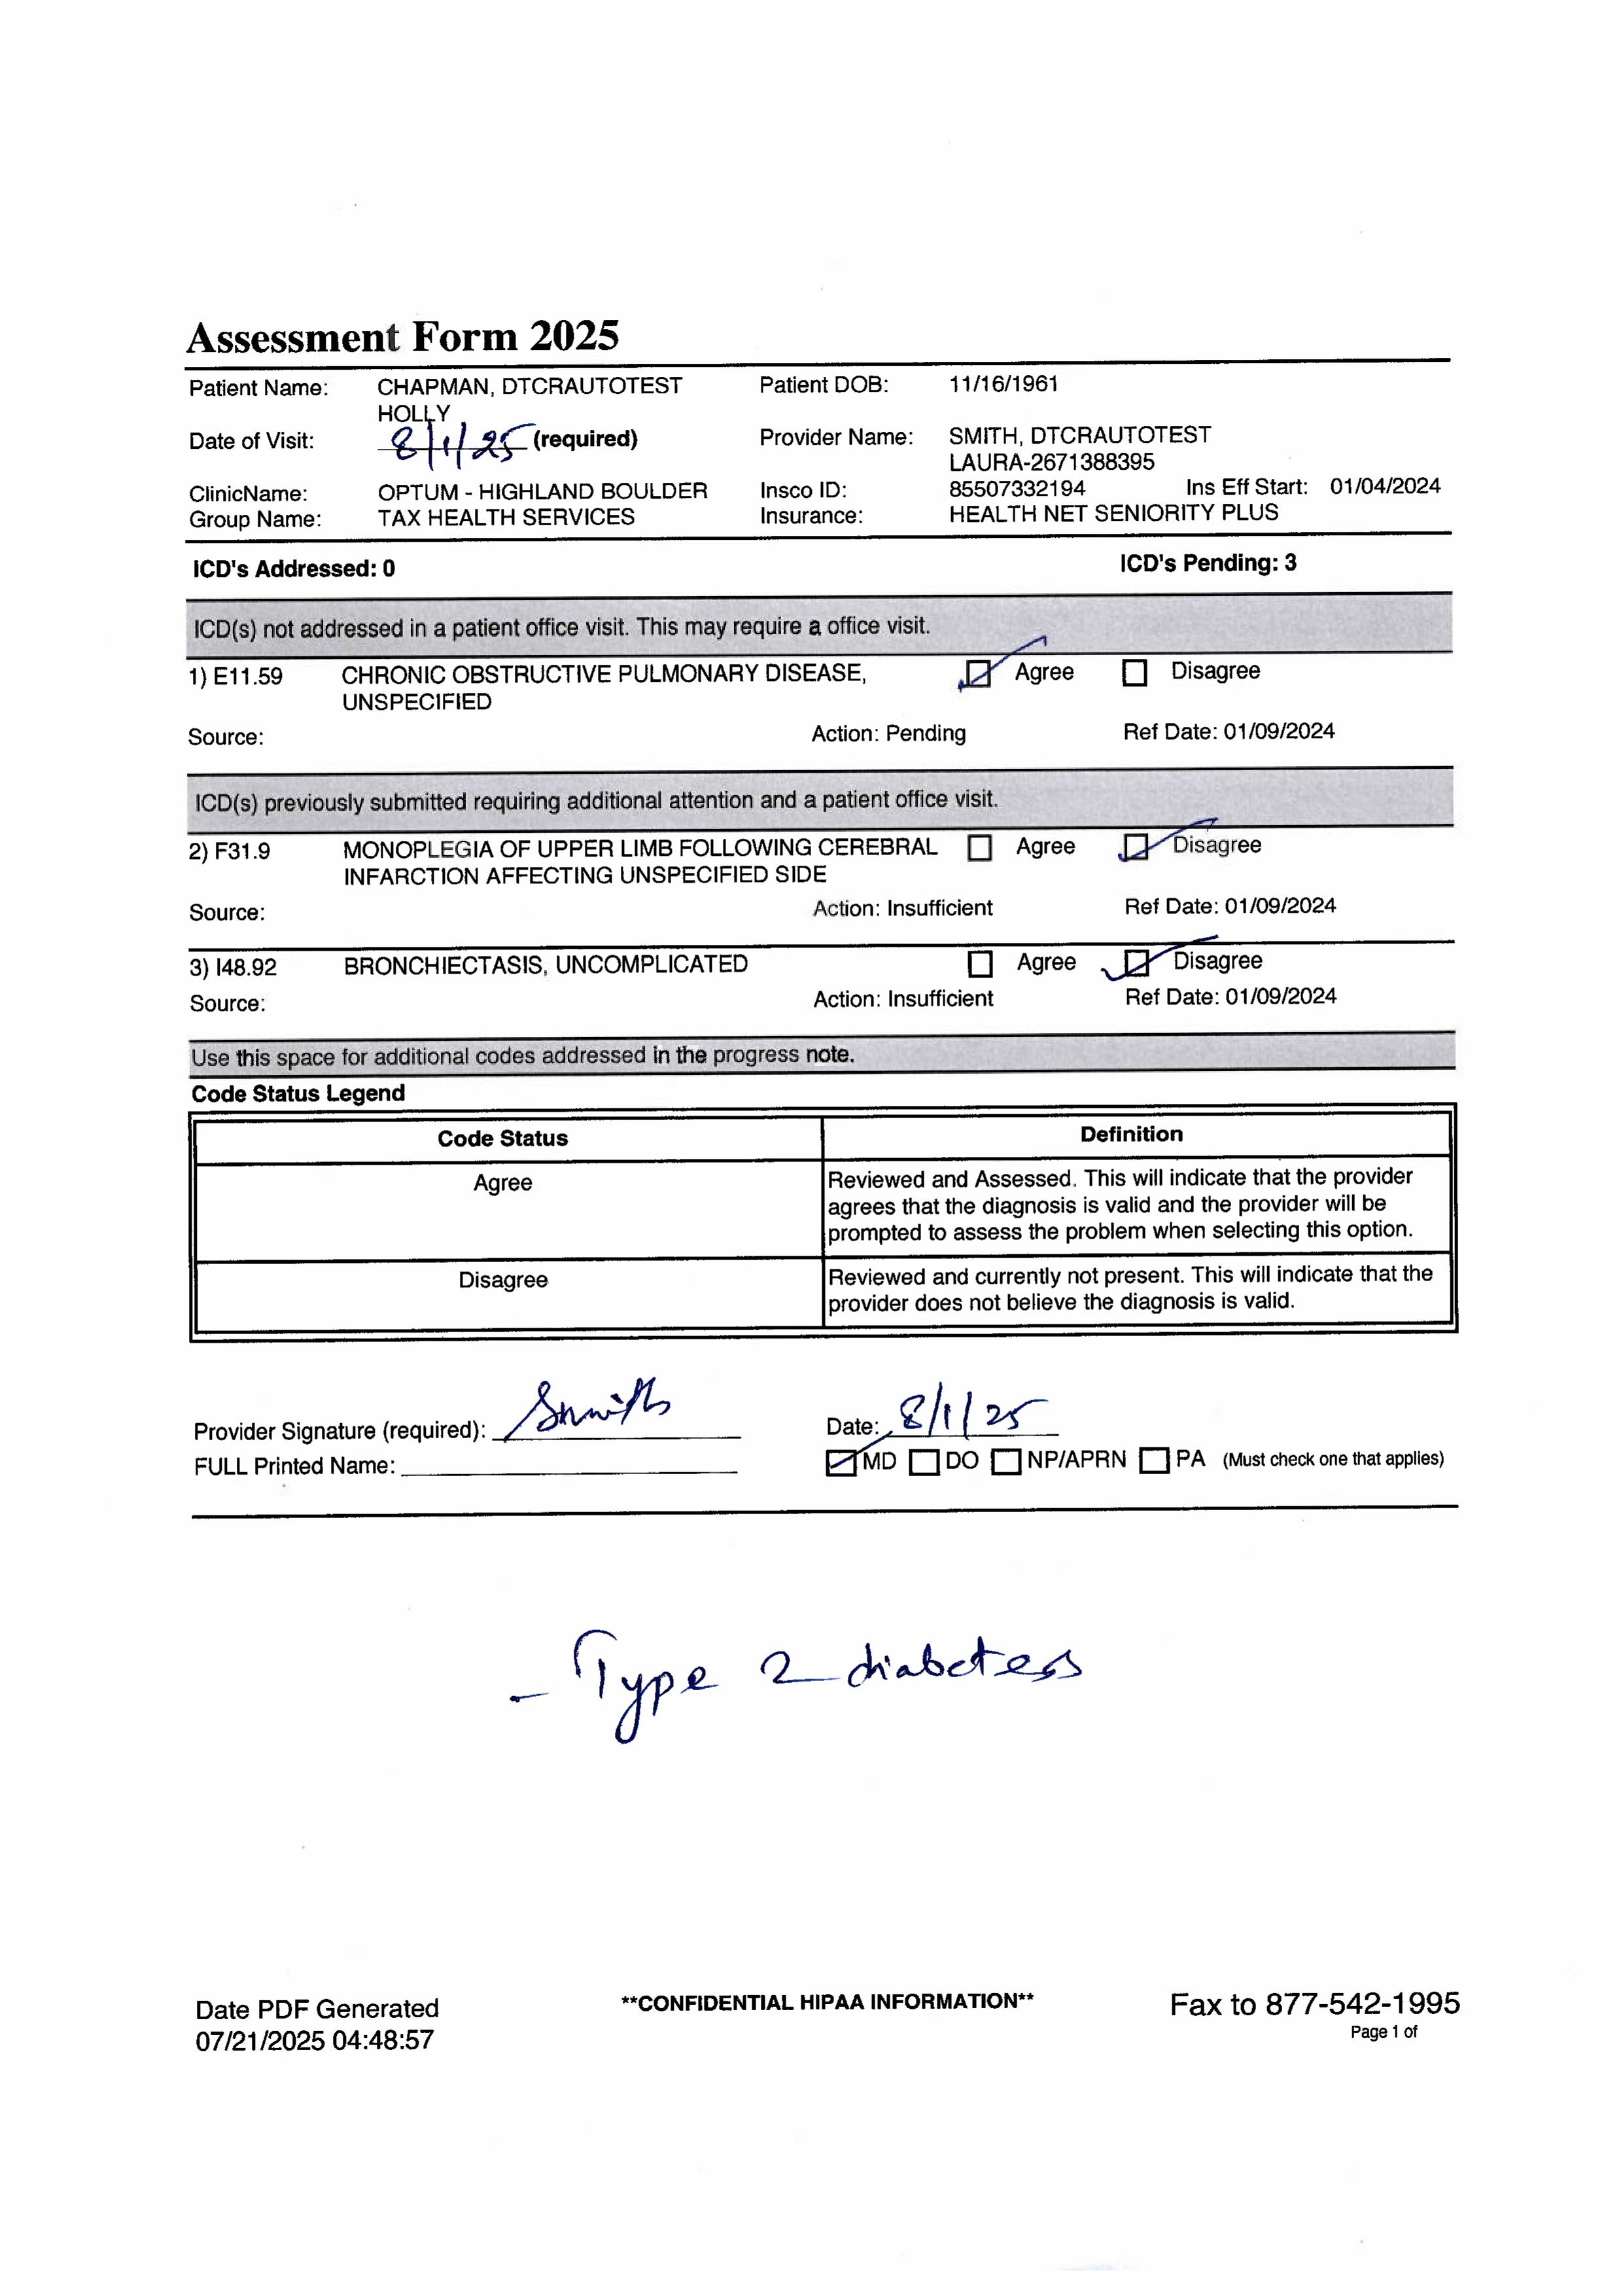 Assessment Form 2025
Patient Name: CHAPMAN, DTCRAUTOTEST HOLLY Patient DOB: 11/16/1961
Date of Visit: 8/1/25 (required) Provider Name: SMITH, DTCRAUTOTEST LAURA-2671388395
ClinicName: OPTUM - HIGHLAND BOULDER Insco ID: 85507332194 Ins Eff Start: 01/04/2024
Group Name: TAX HEALTH SERVICES Insurance: HEALTH NET SENIORITY PLUS
ICD's Addressed: 0 ICD's Pending: 3
ICD(s) not addressed in a patient office visit. This may require a office visit.
1) E11.59 CHRONIC OBSTRUCTIVE PULMONARY DISEASE, Agree Disagree
UNSPECIFIED
Source: Action: Pending Ref Date: 01/09/2024
ICD(s) previously submitted requiring additional attention and a patient office visit.
2) F31.9 MONOPLEGIA OF UPPER LIMB FOLLOWING CEREBRAL Agree Disagree
INFARCTION AFFECTING UNSPECIFIED SIDE
Source: Action: Insufficient Ref Date: 01/09/2024
3) I48.92 BRONCHIECTASIS, UNCOMPLICATED Agree Disagree
Source: Action: Insufficient Ref Date: 01/09/2024
Use this space for additional codes addressed in the progress note.
Code Status Legend
Code Status Definition
Agree Reviewed and Assessed. This will indicate that the provider
agrees that the diagnosis is valid and the provider will be
prompted to assess the problem when selecting this option.
Disagree Reviewed and currently not present. This will indicate that the
provider does not believe the diagnosis is valid.
Provider Signature (required): Smith Date: 8/1/25
FULL Printed Name: MD DO NP/APRN PA (Must check one that applies)
- Type 2 diabetess
Date PDF Generated **CONFIDENTIAL HIPAA INFORMATION** Fax to 877-542-1995
07/21/2025 04:48:57 Page 1 of